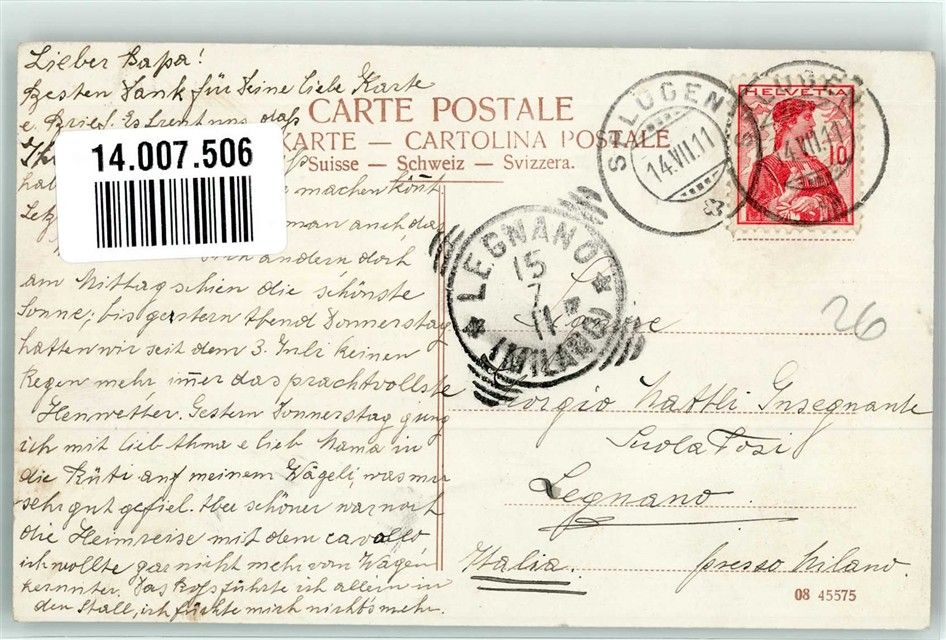 Lieber Papa!
Besten Dank für Deine liebe Karte
e. Brief. Es freut uns, daß
14.007.506
machen könt
man auch das
andern doch
am Mittag schien die schönste
Sonne; bis gestern Abend Donnerstag
hatten wir seit dem 3. Juli keinen
Regen mehr im̅er das prachtvollste
Heuwetter. Gestern Donnerstag gung
ich mit lieb Ahna e lieb Mama in
die Rüti auf meinem Wägeli, was mir
sehr gut gefiel. Aber schöner war noch
die Heimreise mit dem cavallo
ich wollte gar nicht mehr vom Wagen
herunter. Das Roß führte ich allein in
den Stall, ich fürchte mich nichts mehr.
CARTE POSTALE
KARTE — CARTOLINA POSTALE
Suisse — Schweiz — Svizzera.
SPLÜGEN
14.VII.11
HELVETIA
10
LEGNANO
15
7
11
(MILANO)
26
Giorgio Mattli Insegnante
Scuola Tosi
Legnano
Italia.
presso Milano.
08 45575